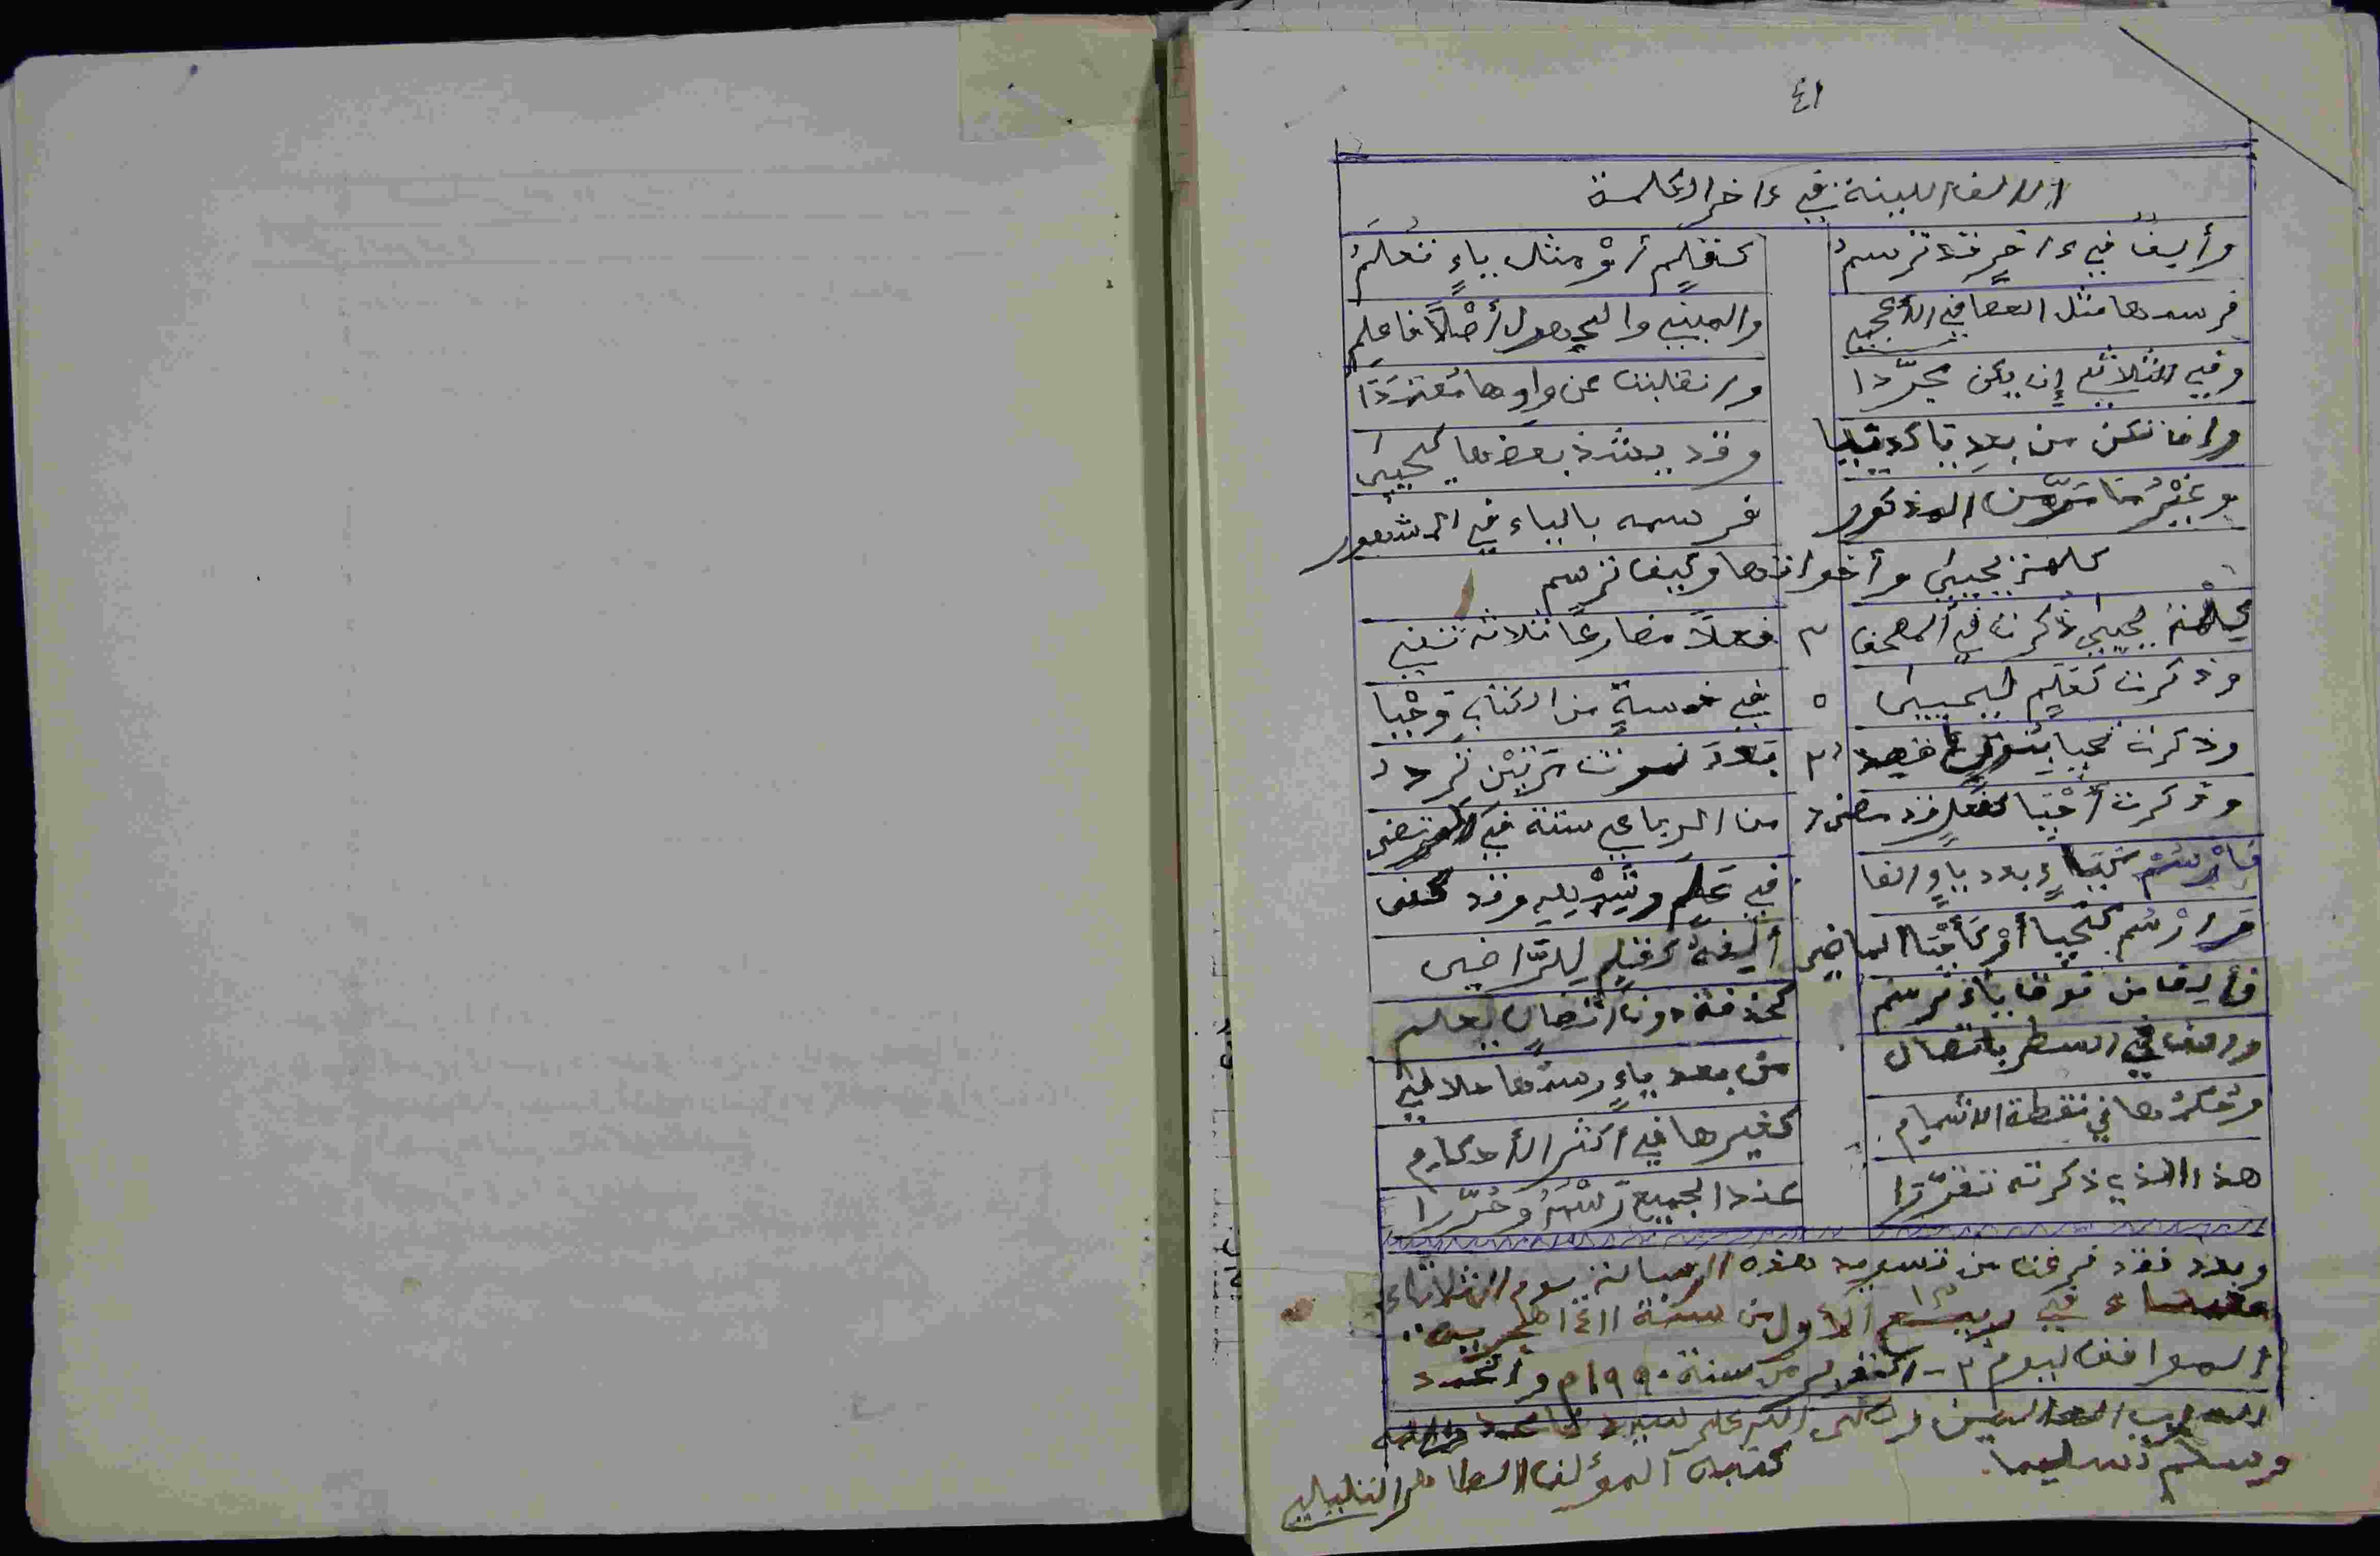 ٤١
الالف اللينة في ءاخر الكلمة
وألف في ءاخر قد ترسم كـقلم أو مثل ياء تعلم
فرسمها مثل العصا في الأعجمي والمبني والمجهول أصلا فاعلم
وفي الثلاثي إن يكن مجردا وانقلبت عن واوها
وإن تكن من بعد يا وقد يشذ بعضها كيحيى
وغير ما من المذكور فرسمه بالياء في المشهور
كلمة يحيى وأخواتها وكيف ترسم
كلمة يحيى ذكرت في المصحف ٣ فعلا مضارعا ثلاثة تفي
وذكرت كعلم ليحيى ٥ في خمسة من الكتاب
وذكرت نحيا بنون ٢
وذكرت أحيا كفعل قد مضى من الرباعي ستة في المرتضى
بعد ياء الفا في علم وقد كفى
وارسم كنحيا أو كأحيا الماضي ألفه
وألف من فوق ياء ترسم كحذفة دون اتصال يعلم
في السطر باتصال من بعد ياء رسمها
وحكمها في نقطة الاشمام كغيرها في أكثر الأحكام
هذا الذي ذكرته تقررا عند الجميع رسمه وحررا
وبعد فقد فرغت من تسويد هذه الرسالة يوم الثلاثاء
في ربيع الأول من سنة ١٤١١ هجرية
الموافق ليوم ٢ - اكتوبر من سنة ١٩٩٠م والحمد
لله رب العالمين وصلى الله على سيدنا محمد وآله
وسلم تسليما. كتبه المؤلف الطاهر التليلي